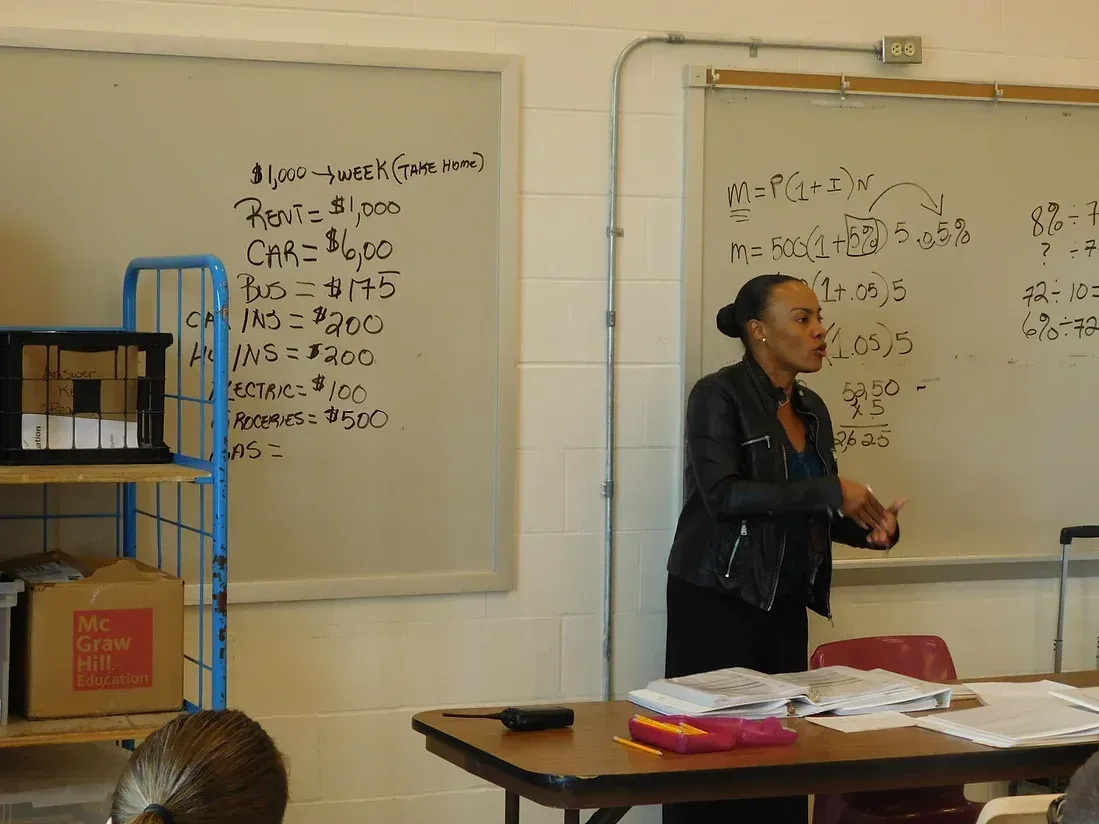 $1,000 → WEEK (TAKE HOME)
RENT = $1,000
CAR = $6,00
BUS = $175
CAR INS = $200
INS = $200
ECTRIC = $100
ROCERIES = $500
AS =
m = P(1 + I)N
m = 500(1 + 5%) 5 .05%
(1 + .05) 5
(1.05) 5
52,50
x 5
2,625
8% ÷ 7
? ÷ 7
72 ÷ 10 =
6% ÷ 72
Answer
Mc
Graw
Hill
Education